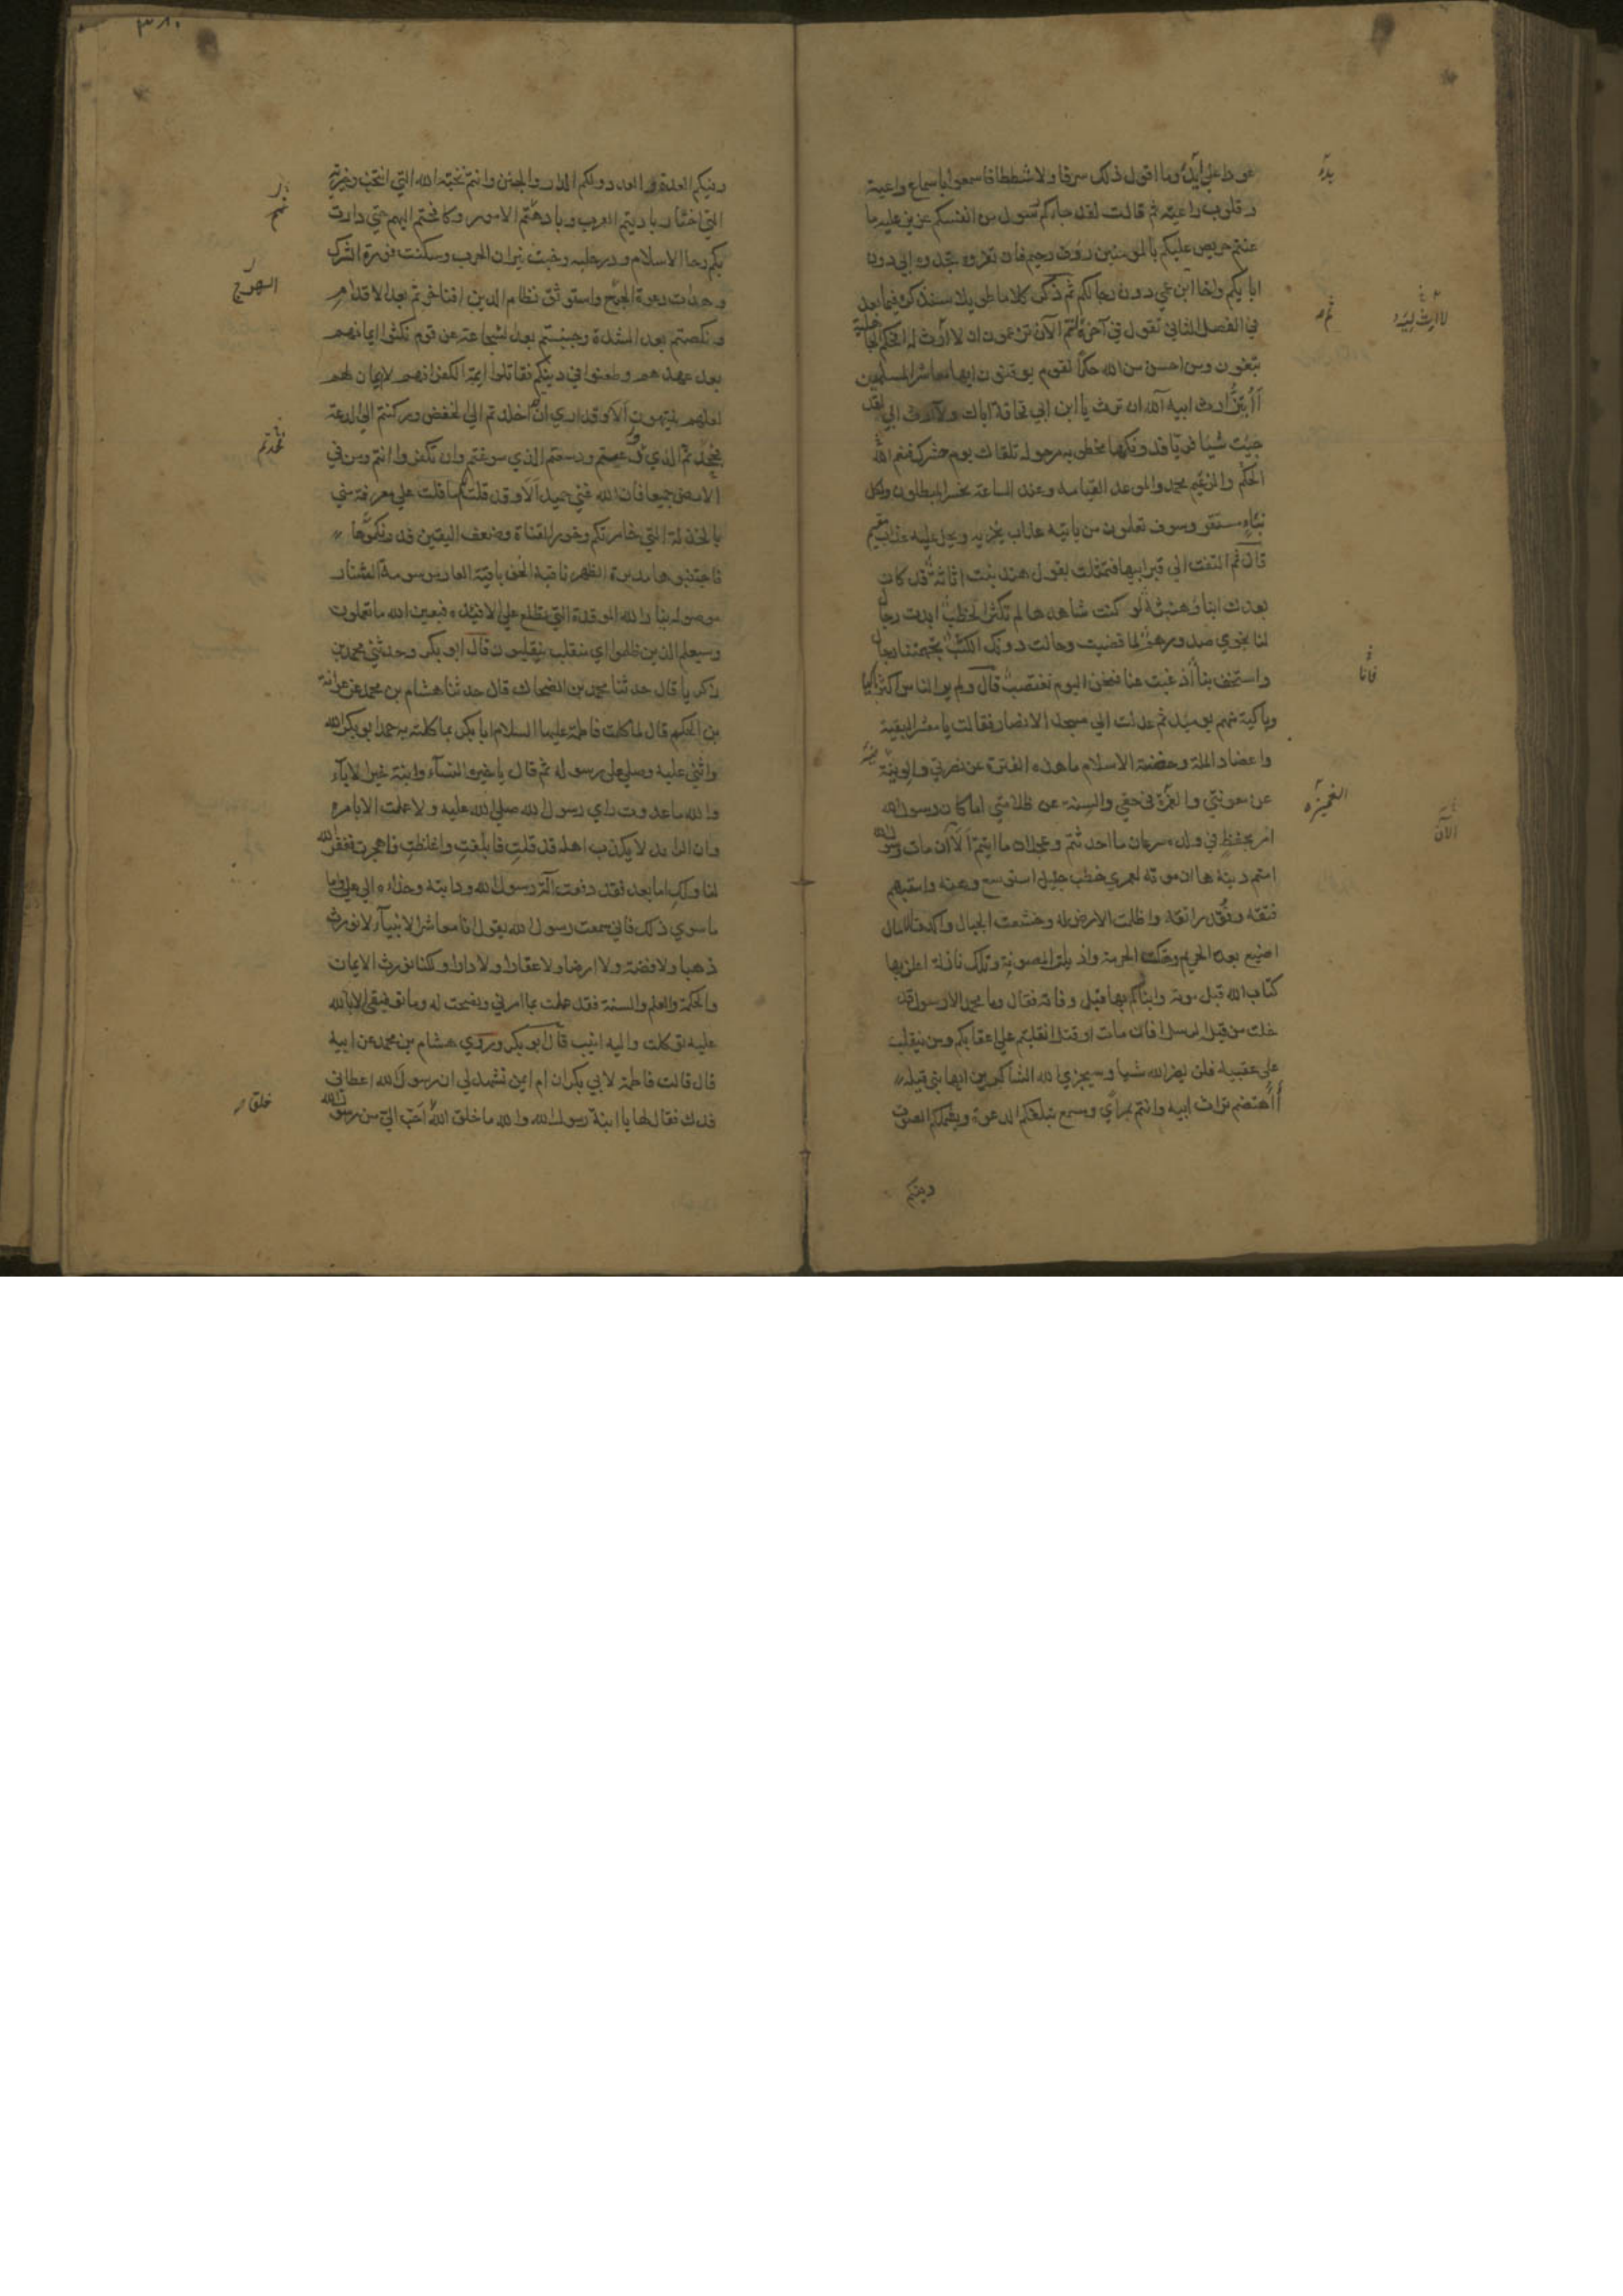 عودا علي بدء وما اقول ذلك سرفا ولا شططا فاسمعوا باسماع واعية
وقلوب راعية ثم قالت لقد جاءكم رسول من انفسكم عزيز عليه ما
عنتم حريص عليكم بالمومنين رؤف رحيم فان تعزوه تجدوه ابي دون
ابايكم واخا ابن عمي دون رجالكم ثم ذكر كلاما طويلا سنذكره فيما بعد
في الفصل الثاني تقول في آخره ثم انتم الآن تزعمون ان لا ارث له افحكم الجاهلية
تبغون ومن احسن من الله حكما لقوم يوقنون ايها معاشر المسلمين
أأبتز ارث ابيه آلله ان ترث يا ابن ابي قحافة اباك ولا ارث ابي لقد
جيت شيا فريا فدونكها مخطومة مرحولة تلقاك يوم حشرك فنعم الحكم الله
والزعيم محمد والموعد القيامة وعند الساعة يخسر المبطلون ولكل
نباء مستقر وسوف تعلمون من ياتيه عذاب يخزيه ويحل عليه عذاب مقيم
قال ثم التفتت الي قبر ابيها فتمثلت بقول هند بنت اثاثة قد كان
بعدك انباء وهنبثة لو كنت شاهدها لم تكثر الخطب ابدت رجال
لنا نجوي صدورهم لما قضيت وحالت دونك الكثب تجهمتنا رجال
واستخف بنا اذ غبت عنا فنحن اليوم نغتصب قال ولم ير الناس اكثر باكيا
وباكية منهم يوميذ ثم عدلت الي مسجد الانصار فقالت يا معشر البقية
واعضاد الملة وحضنة الاسلام ما هذه الفترة عن نصرتي والونية
عن معونتي والغمزة في حقي والسنة عن ظلامتي اما كان رسول الله
امر بحفظي في ولده سرعان ما احدثتم وعجلان ما اتيتم الآن مات رسول الله
امتم دينه ها ان موته لعمري خطب جليل استوسع وهنه واستبهم
فتقه وفقد راتقه واظلمت الارض له وخشعت الجبال واكدت الامال
اضيع بعده الحريم وهتكت الحرمة واذيلت المصونة وتلك نازلة اعلن بها
كتاب الله قبل موته وانباكم بها قبل وفاته فقال وما محمد الا رسول قد
خلت من قبله الرسل افان مات او قتل انقلبتم علي اعقابكم ومن ينقلب
علي عقبيه فلن يضر الله شيا وسيجزي الله الشاكرين ايها بني قيلة
أأهتضم تراث ابيه وانتم بمراي ومسمع تبلغكم الدعوة ويشملكم الصوت
بدء
ثم
لا ارث لبيه
فانا
الغميزة
الآن
وفيكم
٣٨٠
وفيكم العدة والعدد ولكم الدار والجنن وانتم نخبة الله التي انتخب وخيرته
التي اختار باديتم العرب وبادهتم الامور وكافحتم البهم حتي دارت
بكم رحا الاسلام ودر حلبه وخبت نيران الحرب وسكنت فورة الشرك
وهدات دعوة الهرج واستوثق نظام الدين افتاخرتم بعد الاقدام
ونكصتم بعد الشدة وجبنتم بعد الشجاعة عن قوم نكثوا ايمانهم
بعد عهدهم وطعنوا في دينكم فقاتلوا ايمة الكفر انهم لا ايمان لهم
لعلهم ينتهون الا وقد اري ان قد اخلدتم الي الخفض وركنتم الي الدعة
فجحدتم الذي وعيتم ودسعتم الذي سوغتم وان تكفروا انتم ومن في
الارض جميعا فان الله غني حميد الا وقد قلت لكم ما قلت علي معرفة مني
بالخذلة التي خامرتكم وخور القناة وضعف اليقين فدونكموها
فاحتقبوها مدبرة الظهر ناقبة الخف باقية العار موسومة الشنار
موصولة بنار الله الموقدة التي تطلع علي الافئدة فبعين الله ما تعملون
وسيعلم الذين ظلموا اي منقلب ينقلبون قال ابو بكر وحدثني محمد بن
زكريا قال حدثنا محمد بن الضحاك قال حدثنا هشام بن محمد عن عوانة
بن الحكم قال لما كلمت فاطمة عليها السلام ابا بكر بما كلمته به حمد ابو بكر الله
واثني عليه وصلي علي رسوله ثم قال يا خير النساء وابنة خير الاباء
والله ما عدوت راي رسول الله صلي الله عليه ولا عملت الا بامره
وان الرايد لا يكذب اهله قد قلت فابلغت واغلظت فاهجرت فغفر الله
لنا ولك اما بعد فقد دفعت آلة رسول الله ودابته وحذاءه الي علي واما
ما سوي ذلك فاني سمعت رسول الله يقول انا معاشر الانبياء لا نورث
ذهبا ولا فضة ولا ارضا ولا عقارا ولا دارا ولكنا نورث الايمان
والحكمة والعلم والسنة فقد عملت بما امرني ونصحت له وما توفيقي الا بالله
عليه توكلت واليه انيب قال ابو بكر وروي هشام بن محمد عن ابيه
قال قالت فاطمة لابي بكر ان ام ايمن تشهد لي ان رسول الله اعطاني
فدك فقال لها يا ابنة رسول الله والله ما خلق الله احب الي من رسول الله
الهرج
خلق